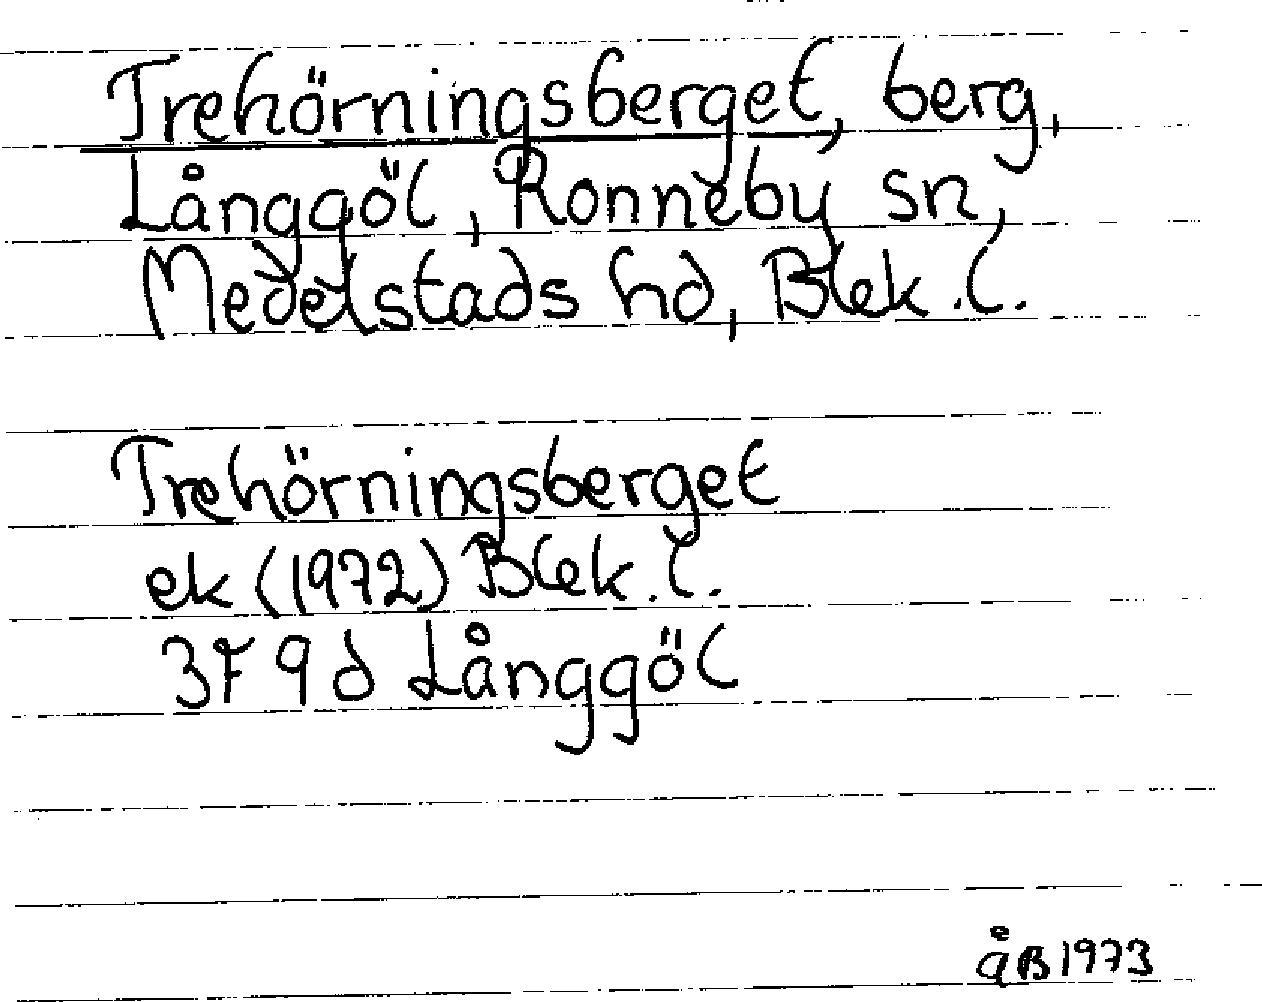 Trehörningsberget, berg,
Långgöl, Ronneby sn,
Medelstads hd, Blek.l.
Trehörningsberget
ek (1972) Blek.l.
3F 9d Långgöl
åB 1973